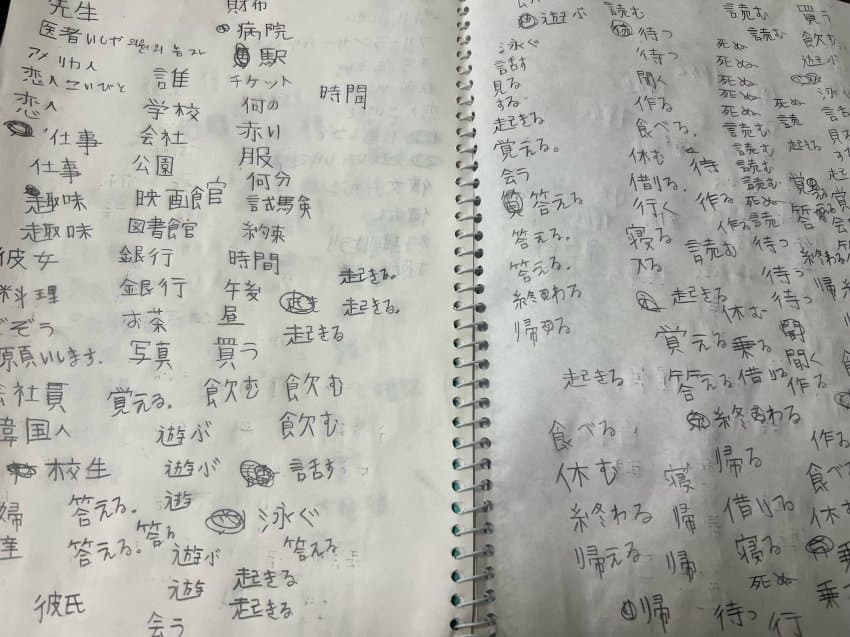 先生
医者 いしゃ
アメリカ人
恋人 こいびと
恋人
仕事
仕事
趣味
趣味
彼女
料理
どぞう
願いします。
会社員
韓国人
校生
婦
彼氏
誰
学校
会社
公園
映画館 官
図書館
銀行
銀行
お茶
写真
覚える。
遊ぶ
遊ぶ
遊
遊ぶ
遊
会う
答える。
答える。
答る
財布
病院
駅
チケット
何の
赤い
服
何分
試験
約束
時間
午後
昼
買う
飲む
時間
起きる。
起きる。
起きる
飲む
飲む
話す
泳ぐ
答える
起きる
起きる
遊ぶ
泳ぐ
話す
見る
する
起きる
覚える。
会う
答える
答える。
答える。
終わる
帰る
起きる
食べる
休む
終わる
帰える
読む
待つ
待つ
聞く
作る
食べる。
休む
借りる。
行く
寝る
入る
起きる
覚える
答える
寝
帰
帰
帰
待
作る
作る
読む
休む
乗る
借りる
終わる
帰る
借りる
寝る
死ぬ
待つ
行
読む
読む
死ぬ
死ぬ
死ぬ
死ぬ
死ぬ
読む
読
読む
読む
読む
読む
読
待つ
待つ
待つ
聞く
作る
買う
飲む
遊ぶ
泳
話
見
す
起きる
起
覚
答
会
終わる
帰
作る
食べ
休む
乗
乗